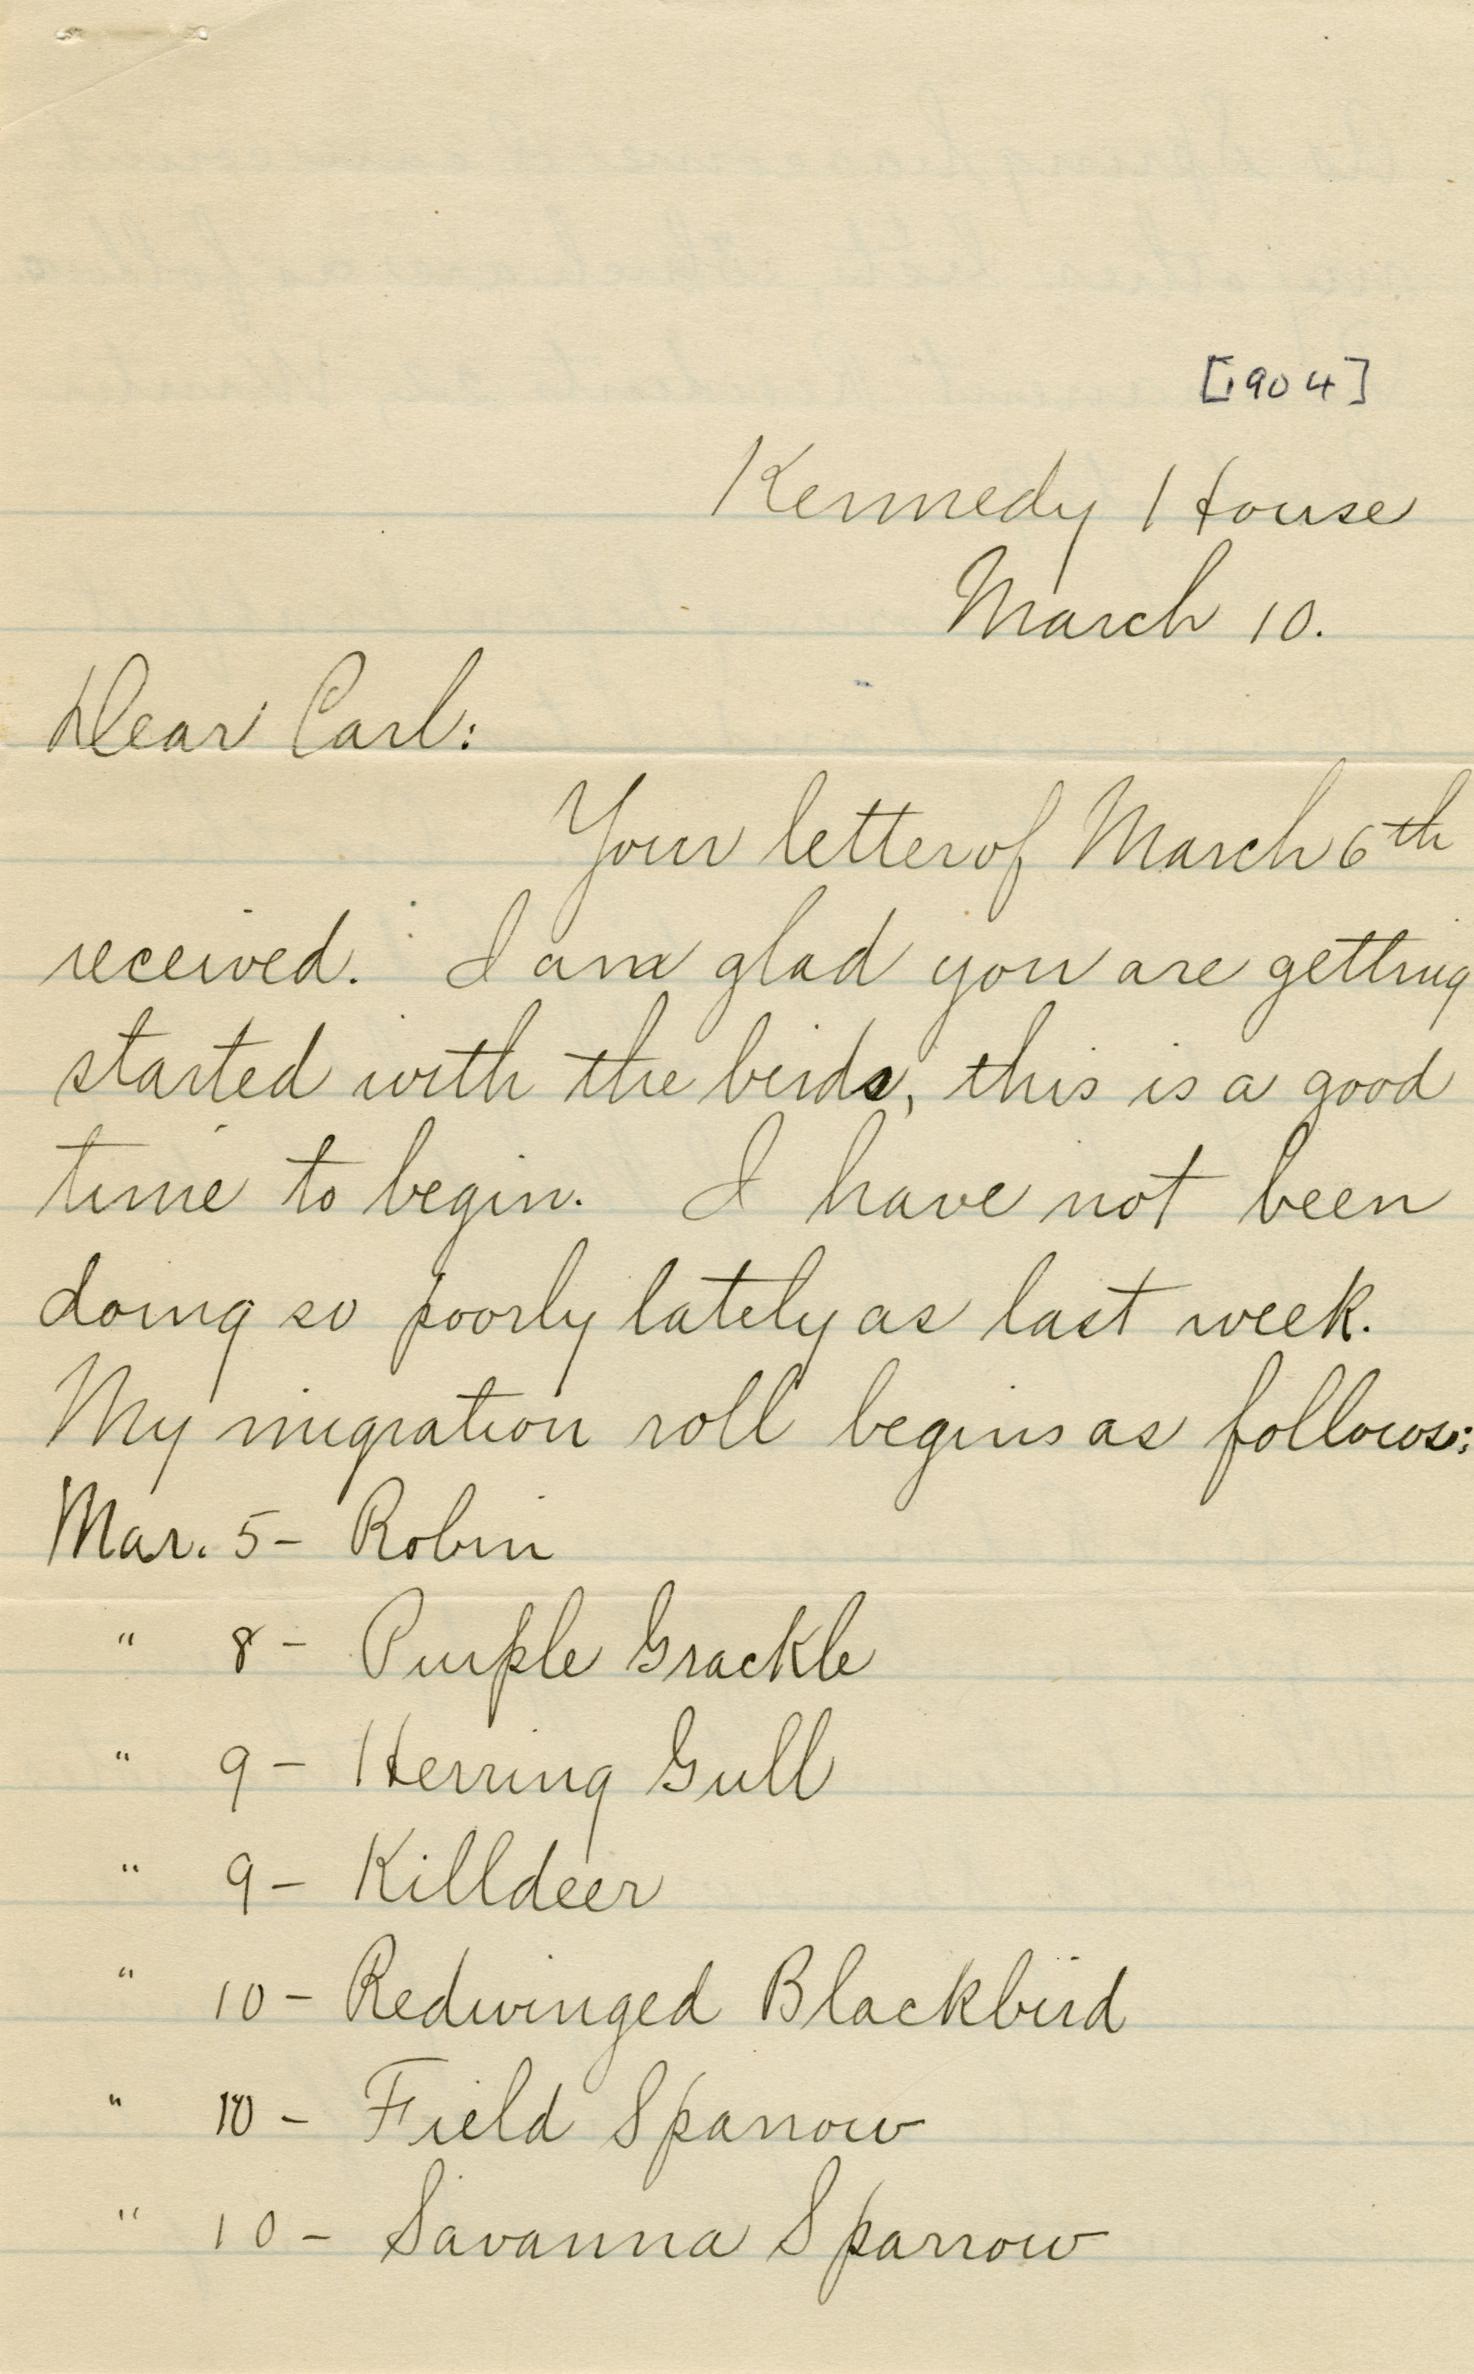 [1904]
Kennedy House
March 10.
Dear Carl:
Your letter of March 6th
received. I am glad you are getting
started with the birds, this is a good
time to begin. I have not been
doing so poorly lately as last week.
My migration roll begins as follows:
Mar. 5 - Robin
" 8 - Purple Grackle
" 9 - Herring Gull
" 9 - Killdeer
" 10 - Redwinged Blackbird
" 10 - Field Sparrow
" 10 - Savanna Sparrow